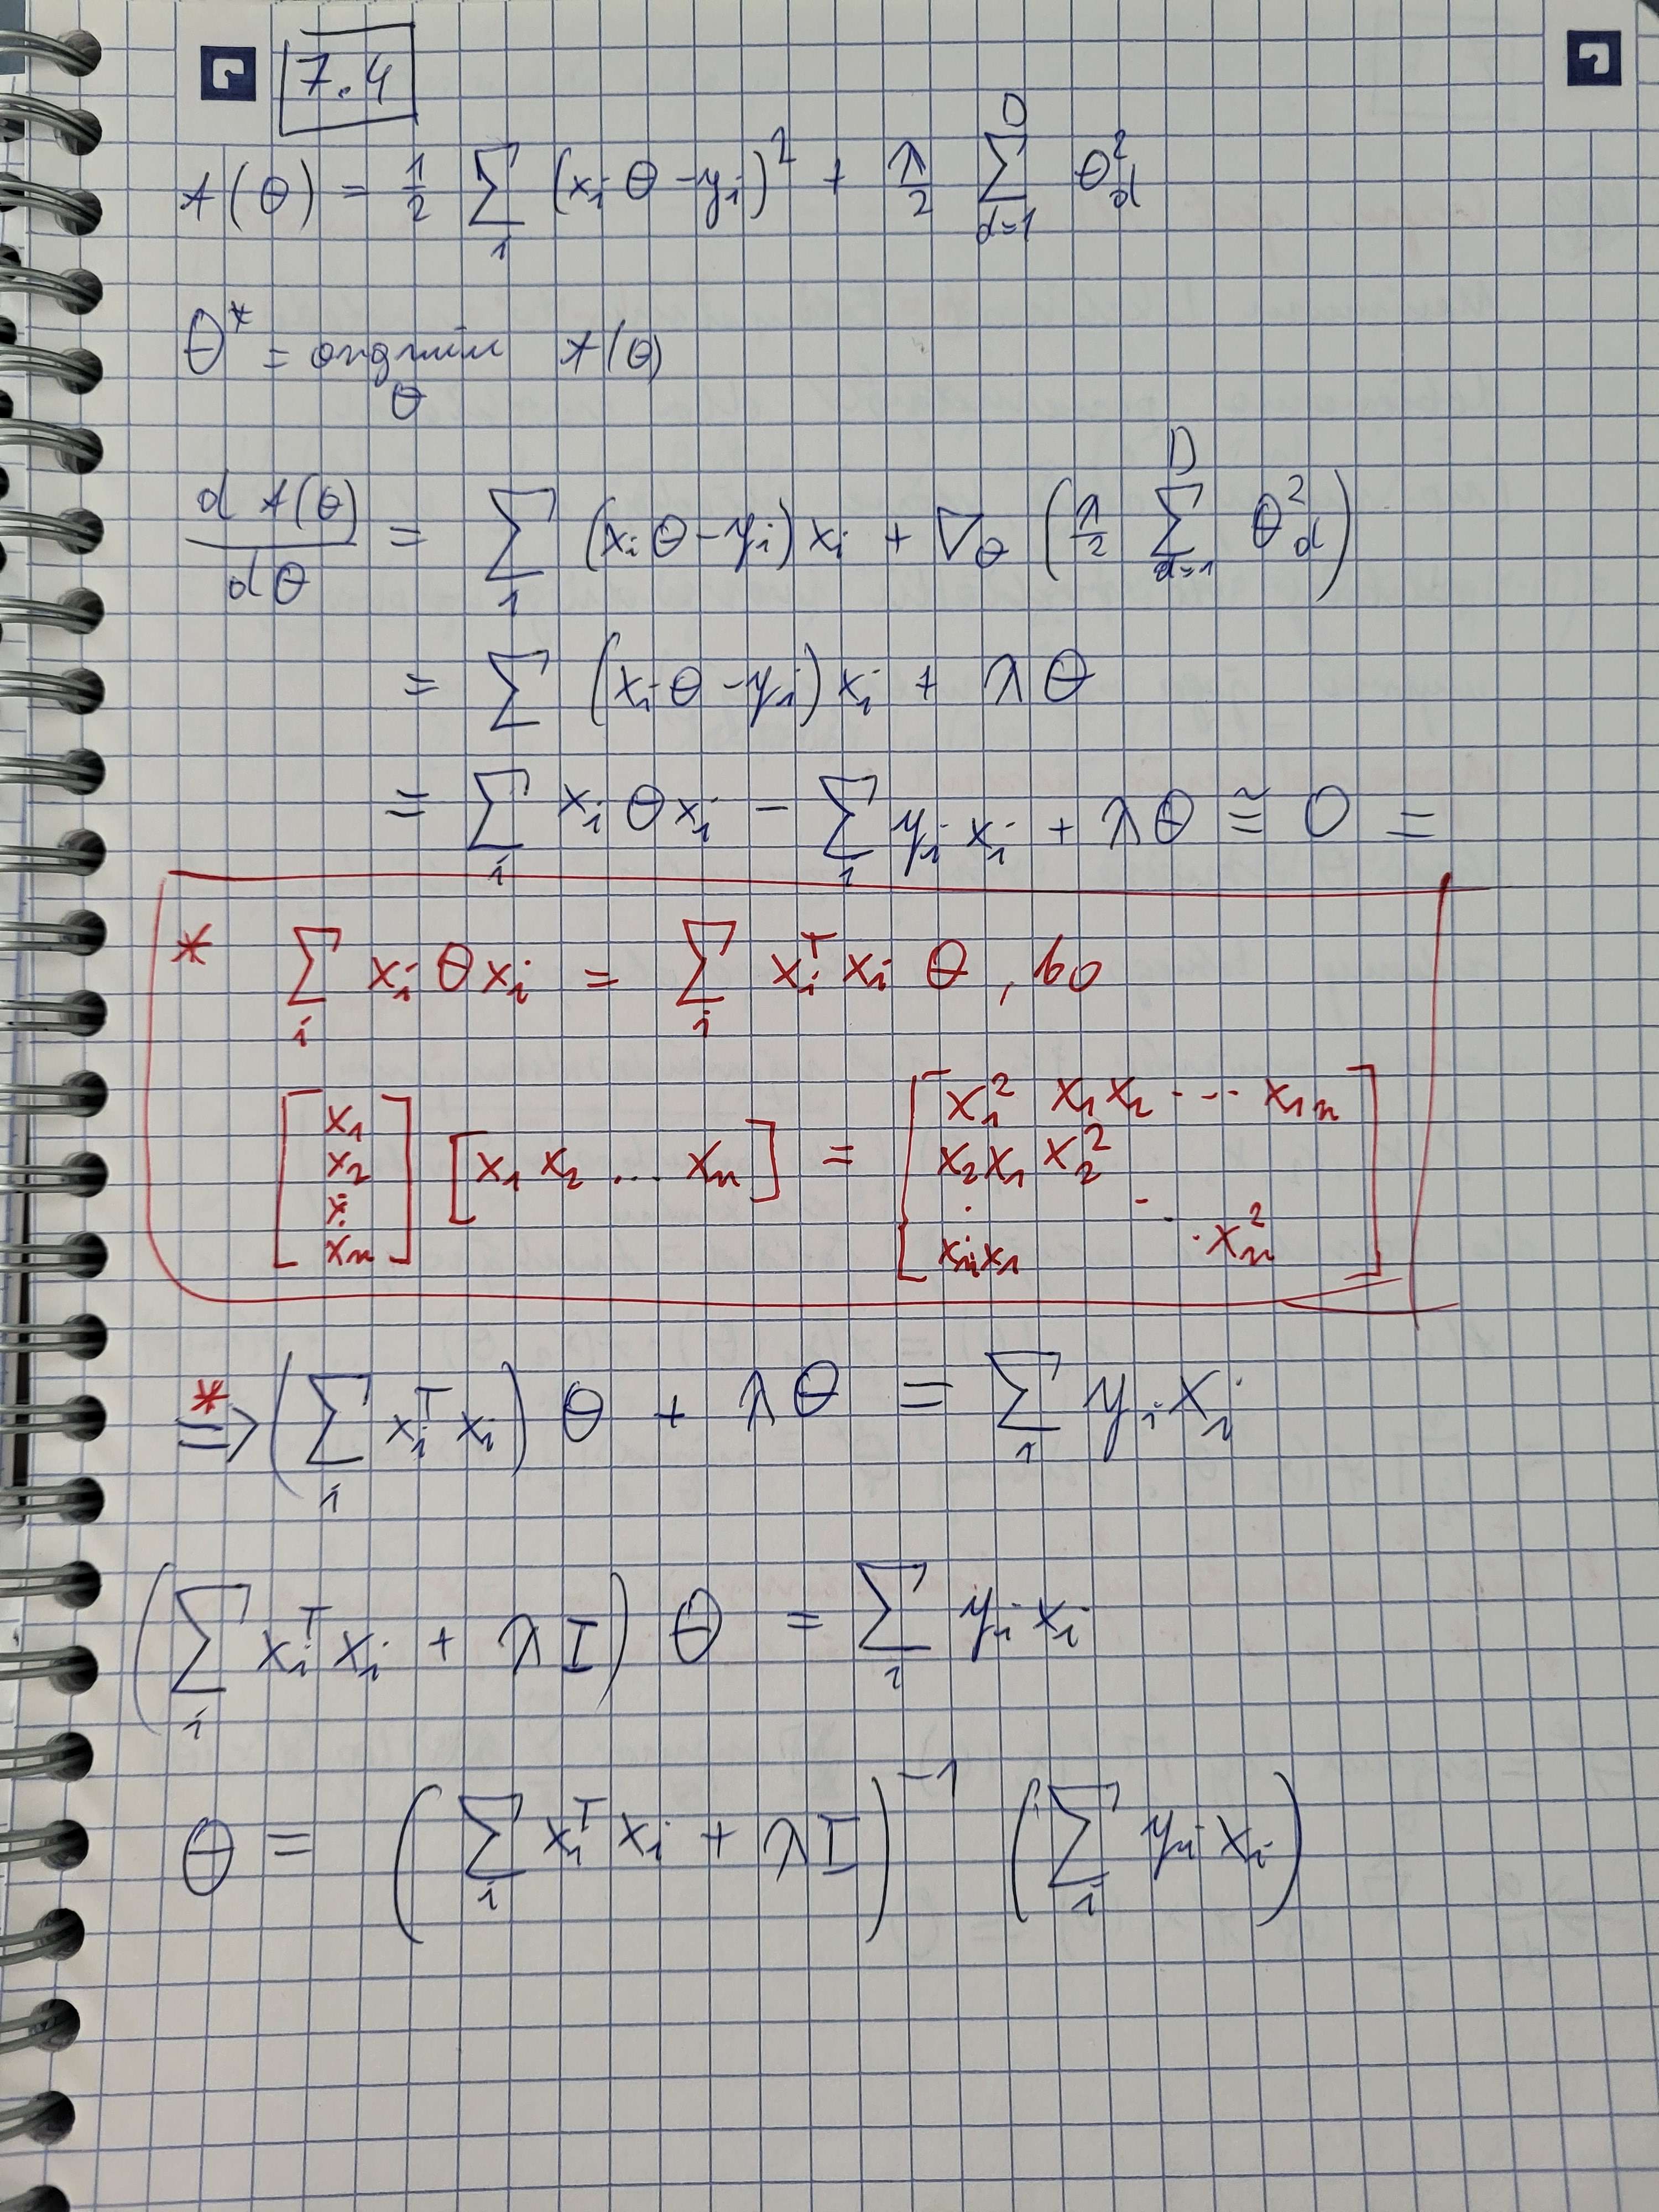 7.4
f(θ) = 1/2 ∑_i (x_i θ - y_i)² + λ/2 ∑_{d=1}^{D} θ_d²
θ* = argmin_θ f(θ)
d f(θ) / dθ = ∑_i (x_i θ - y_i) x_i + ∇_θ (λ/2 ∑_{d=1}^{D} θ_d²)
= ∑ (x_i θ - y_i) x_i + λ θ
= ∑_i x_i θ x_i - ∑_i y_i x_i + λ θ ≅ 0 =
* ∑_i x_i θ x_i = ∑_i x_i^T x_i θ , bo
[x_1 x_2 ⋮ x_n] [x_1 x_2 ... x_n] = [x_1² x_1x_2 ... x_{1n}
x_2x_1 x_2²
⋮ ⋱
x_nx_1 x_n²]
*⇒ (∑_i x_i^T x_i) θ + λ θ = ∑_i y_i x_i
(∑_i x_i^T x_i + λ I) θ = ∑_i y_i x_i
θ = (∑_i x_i^T x_i + λ I)^{-1} (∑_i y_i x_i)